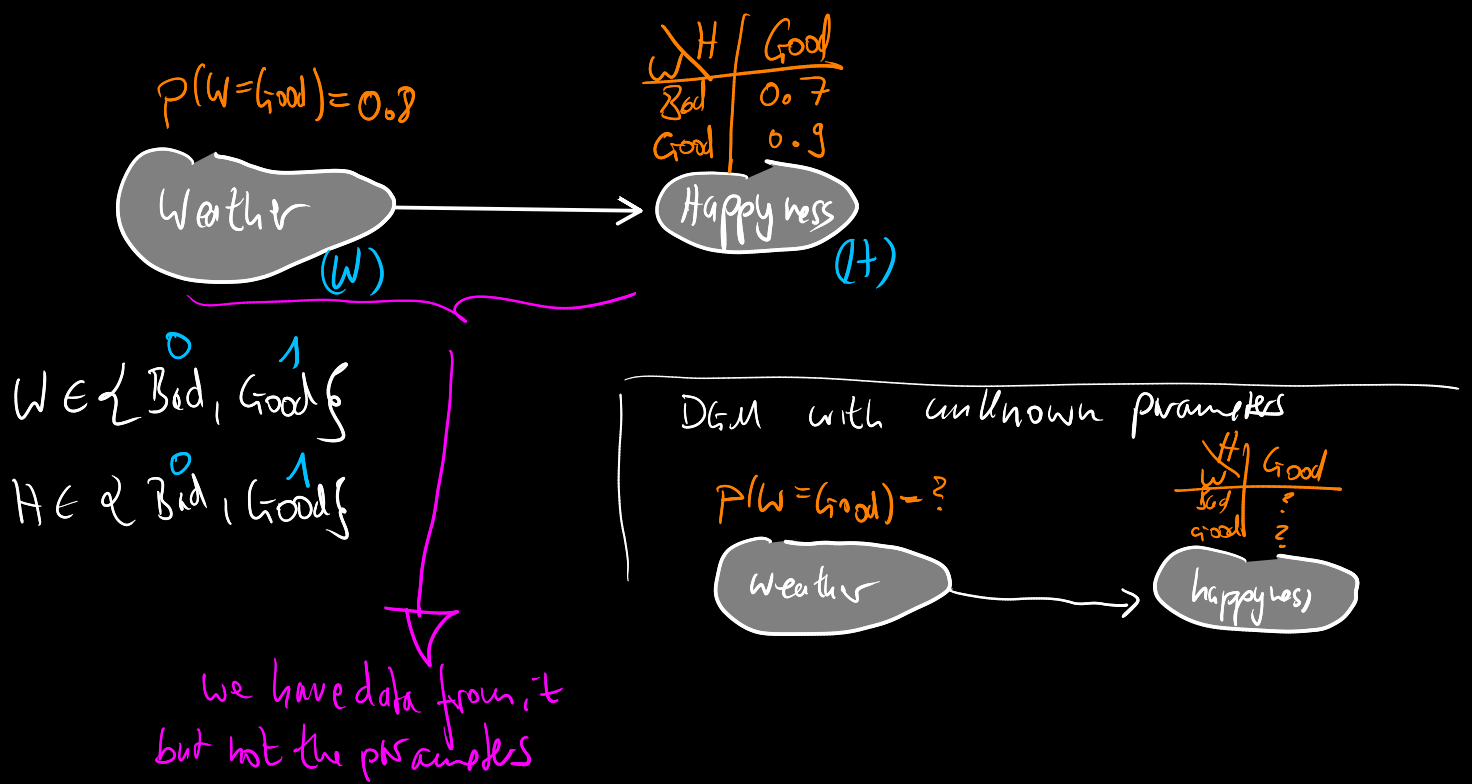 P(W=Good)=0.8
W H Good
Bad 0.7
Good 0.9
Weather
(W)
Happyness
(H)
0 1
W ∈ { Bad, Good }
0 1
H ∈ { Bad, Good }
we have data from it
but not the parameters
DGM with unknown parameters
P(W=Good)=?
W H Good
Bad ?
Good ?
weather
happyness